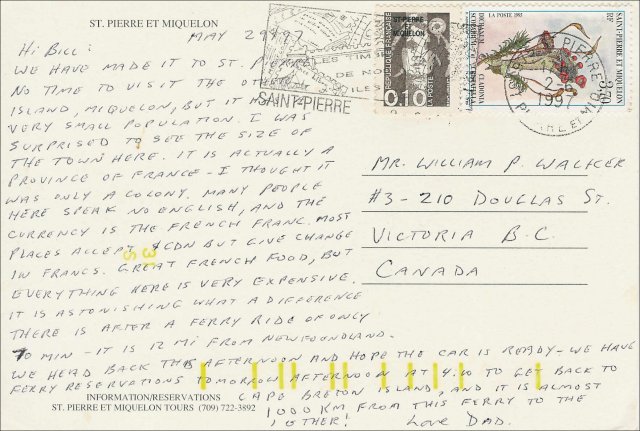 ST. PIERRE ET MIQUELON
MAY 29 1997
Hi Bill:
WE HAVE MADE IT TO ST. PIERRE
NO TIME TO VISIT THE OTHER
ISLAND, MIQUELON, BUT IT HAS A
VERY SMALL POPULATION. I WAS
SURPRISED TO SEE THE SIZE OF
THE TOWN HERE. IT IS ACTUALLY A
PROVINCE OF FRANCE - I THOUGHT IT
WAS ONLY A COLONY. MANY PEOPLE
HERE SPEAK NO ENGLISH, AND THE
CURRENCY IS THE FRENCH FRANC. MOST
PLACES ACCEPT $CDN BUT GIVE CHANGE
IN FRANCS. GREAT FRENCH FOOD, BUT
EVERYTHING HERE IS VERY EXPENSIVE.
IT IS ASTONISHING WHAT A DIFFERENCE
THERE IS AFTER A FERRY RIDE OF ONLY
70 MIN - IT IS 12 MI FROM NEWFOUNDLAND.
WE HEAD BACK THIS AFTERNOON AND HOPE THE CAR IS READY - WE HAVE
FERRY RESERVATIONS TOMORROW AFTERNOON AT 4.00 TO GET BACK TO
CAPE BRETON ISLAND, AND IT IS ALMOST
1000 KM FROM THIS FERRY TO THE
OTHER! LOVE DAD.
INFORMATION/RESERVATIONS
ST. PIERRE ET MIQUELON TOURS (709) 722-3892
LES TIMB
DE NO
ILES
SAINT-PIERRE
ST-PIERRE ET
MIQUELON
REPUBLIQUE FRANÇAISE
0,10
LA POSTE
LA POSTE 1995
RF
SAINT-PIERRE ET MIQUELON
CLADONIA
3,70
ST PIERRE
1997
ST PIERRE ET MIQ
MR. WILLIAM P. WALKER
#3-210 DOUGLAS ST.
VICTORIA B.C.
CANADA